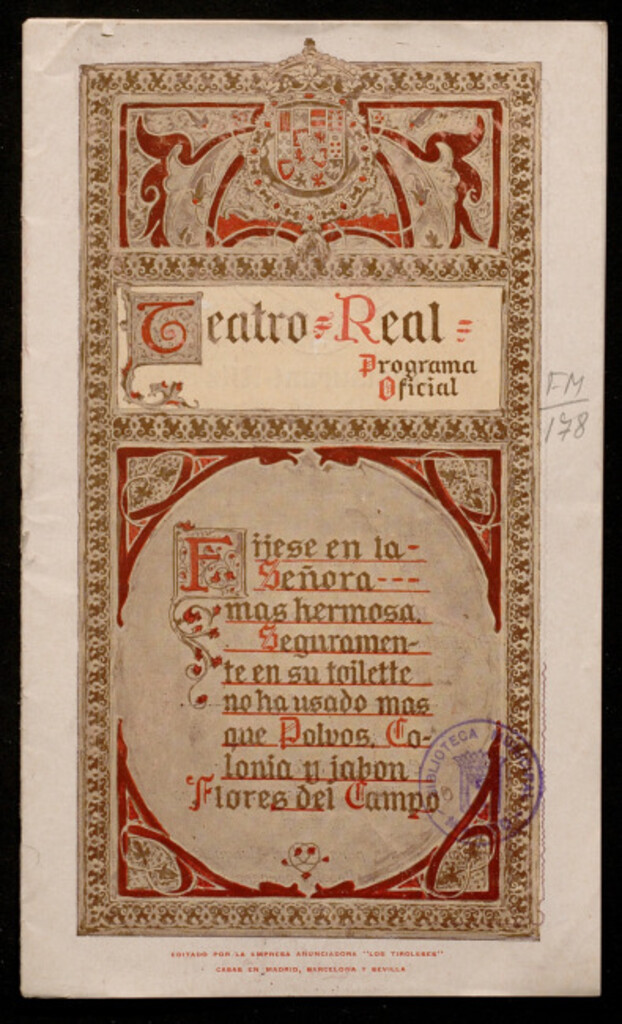 Teatro Real
Programa
Oficial
FM
178
Fijese en la
Señora
mas hermosa.
Seguramen-
te en su toilette
no ha usado mas
que Polvos, Co-
lonia y jabon
Flores del Campo
BIBLIOTECA
EDITADO POR LA EMPRESA ANUNCIADORA "LOS TIROLESES"
CASAS EN MADRID, BARCELONA Y SEVILLA